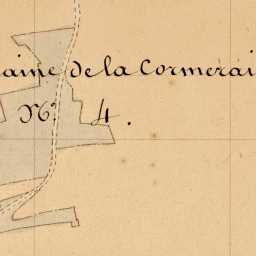 aine de la Cormerai
N° 4.